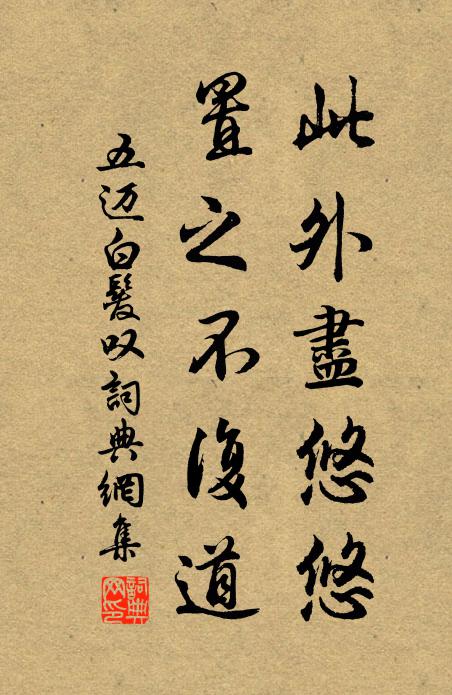 此外盡悠悠
置之不復道
五迈白髮叹詞典網集
詞典網印